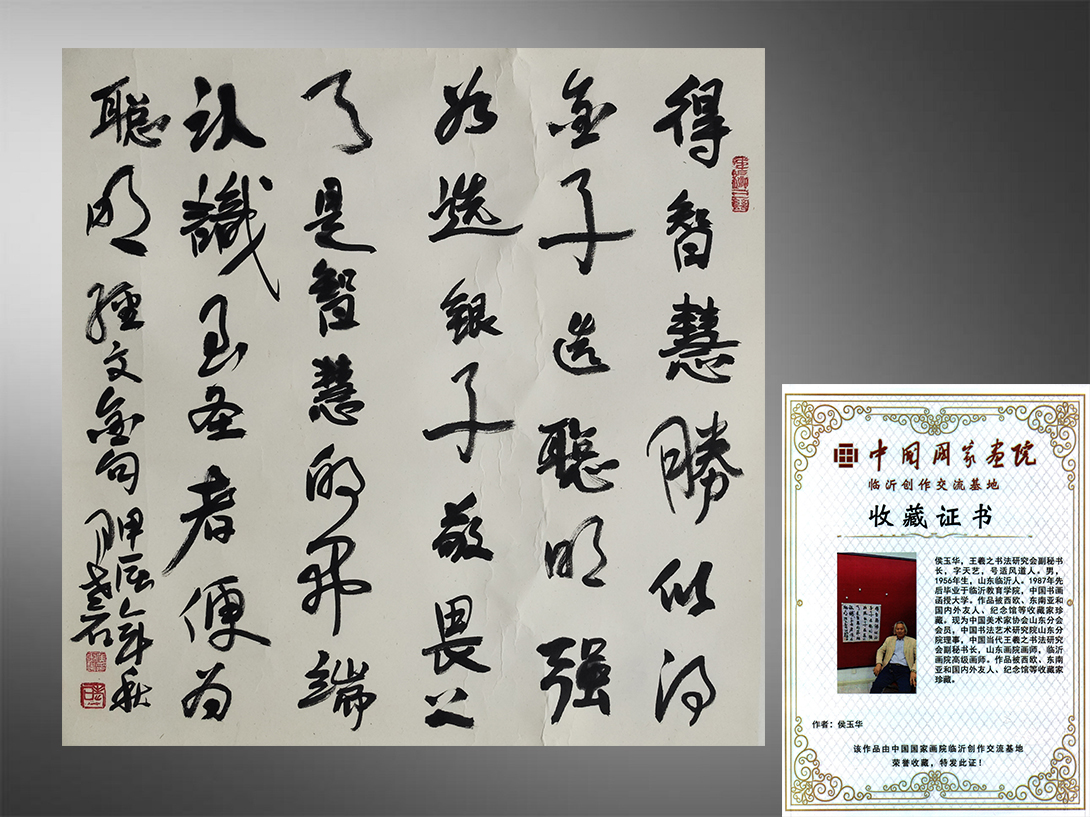 得智慧勝似得
金子选聰明强
如选银子敬畏
是智慧的开端
认識至圣者便为
聪明 经文金句
甲辰年秋
中国国家画院
临沂创作交流基地
收藏证书
侯玉华，王羲之书法研究会副秘书
长，字天艺，号适风道人。男，
1956年生，山东临沂人。1987年先
后毕业于临沂教育学院，中国书画
函授大学。作品被西欧、东南亚和
国内外友人、纪念馆等收藏家珍
藏。现为中国美术家协会山东分会
会员，中国书法艺术研究院山东分
院理事，中国当代王羲之书法研究
会副秘书长，山东画院画师，临沂
画院高级画师。作品被西欧、东南
亚和国内外友人、纪念馆等收藏家
珍藏。
作者：侯玉华
该作品由中国国家画院临沂创作交流基地
荣誉收藏，特发此证！